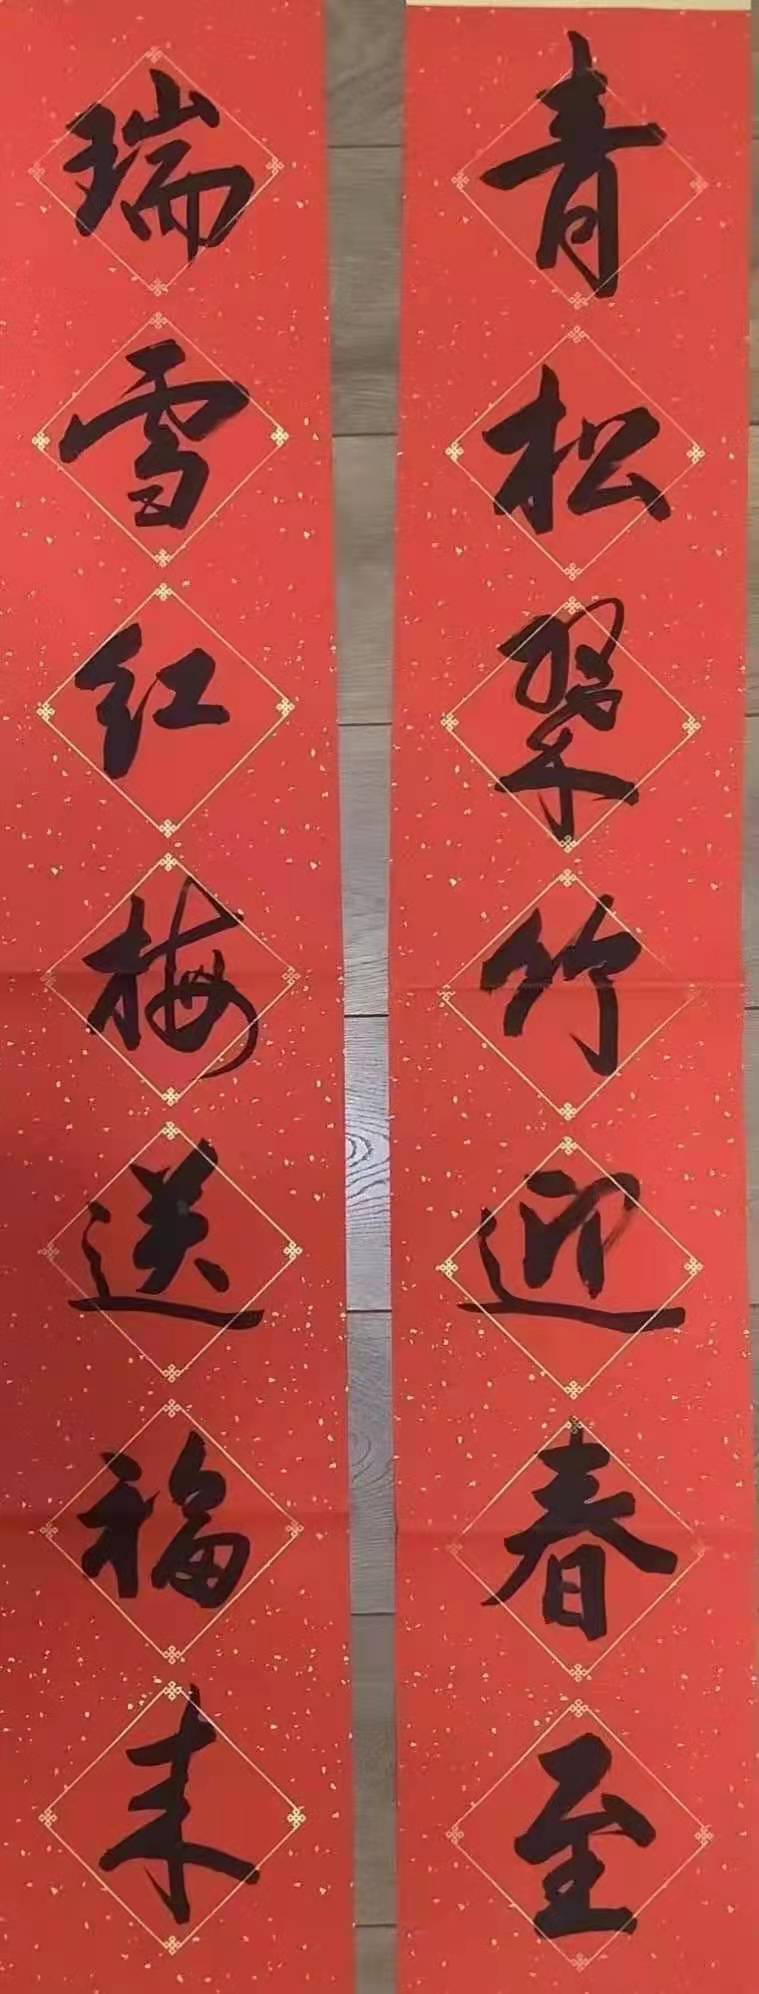 青松翠竹迎春至
瑞雪红梅送福来